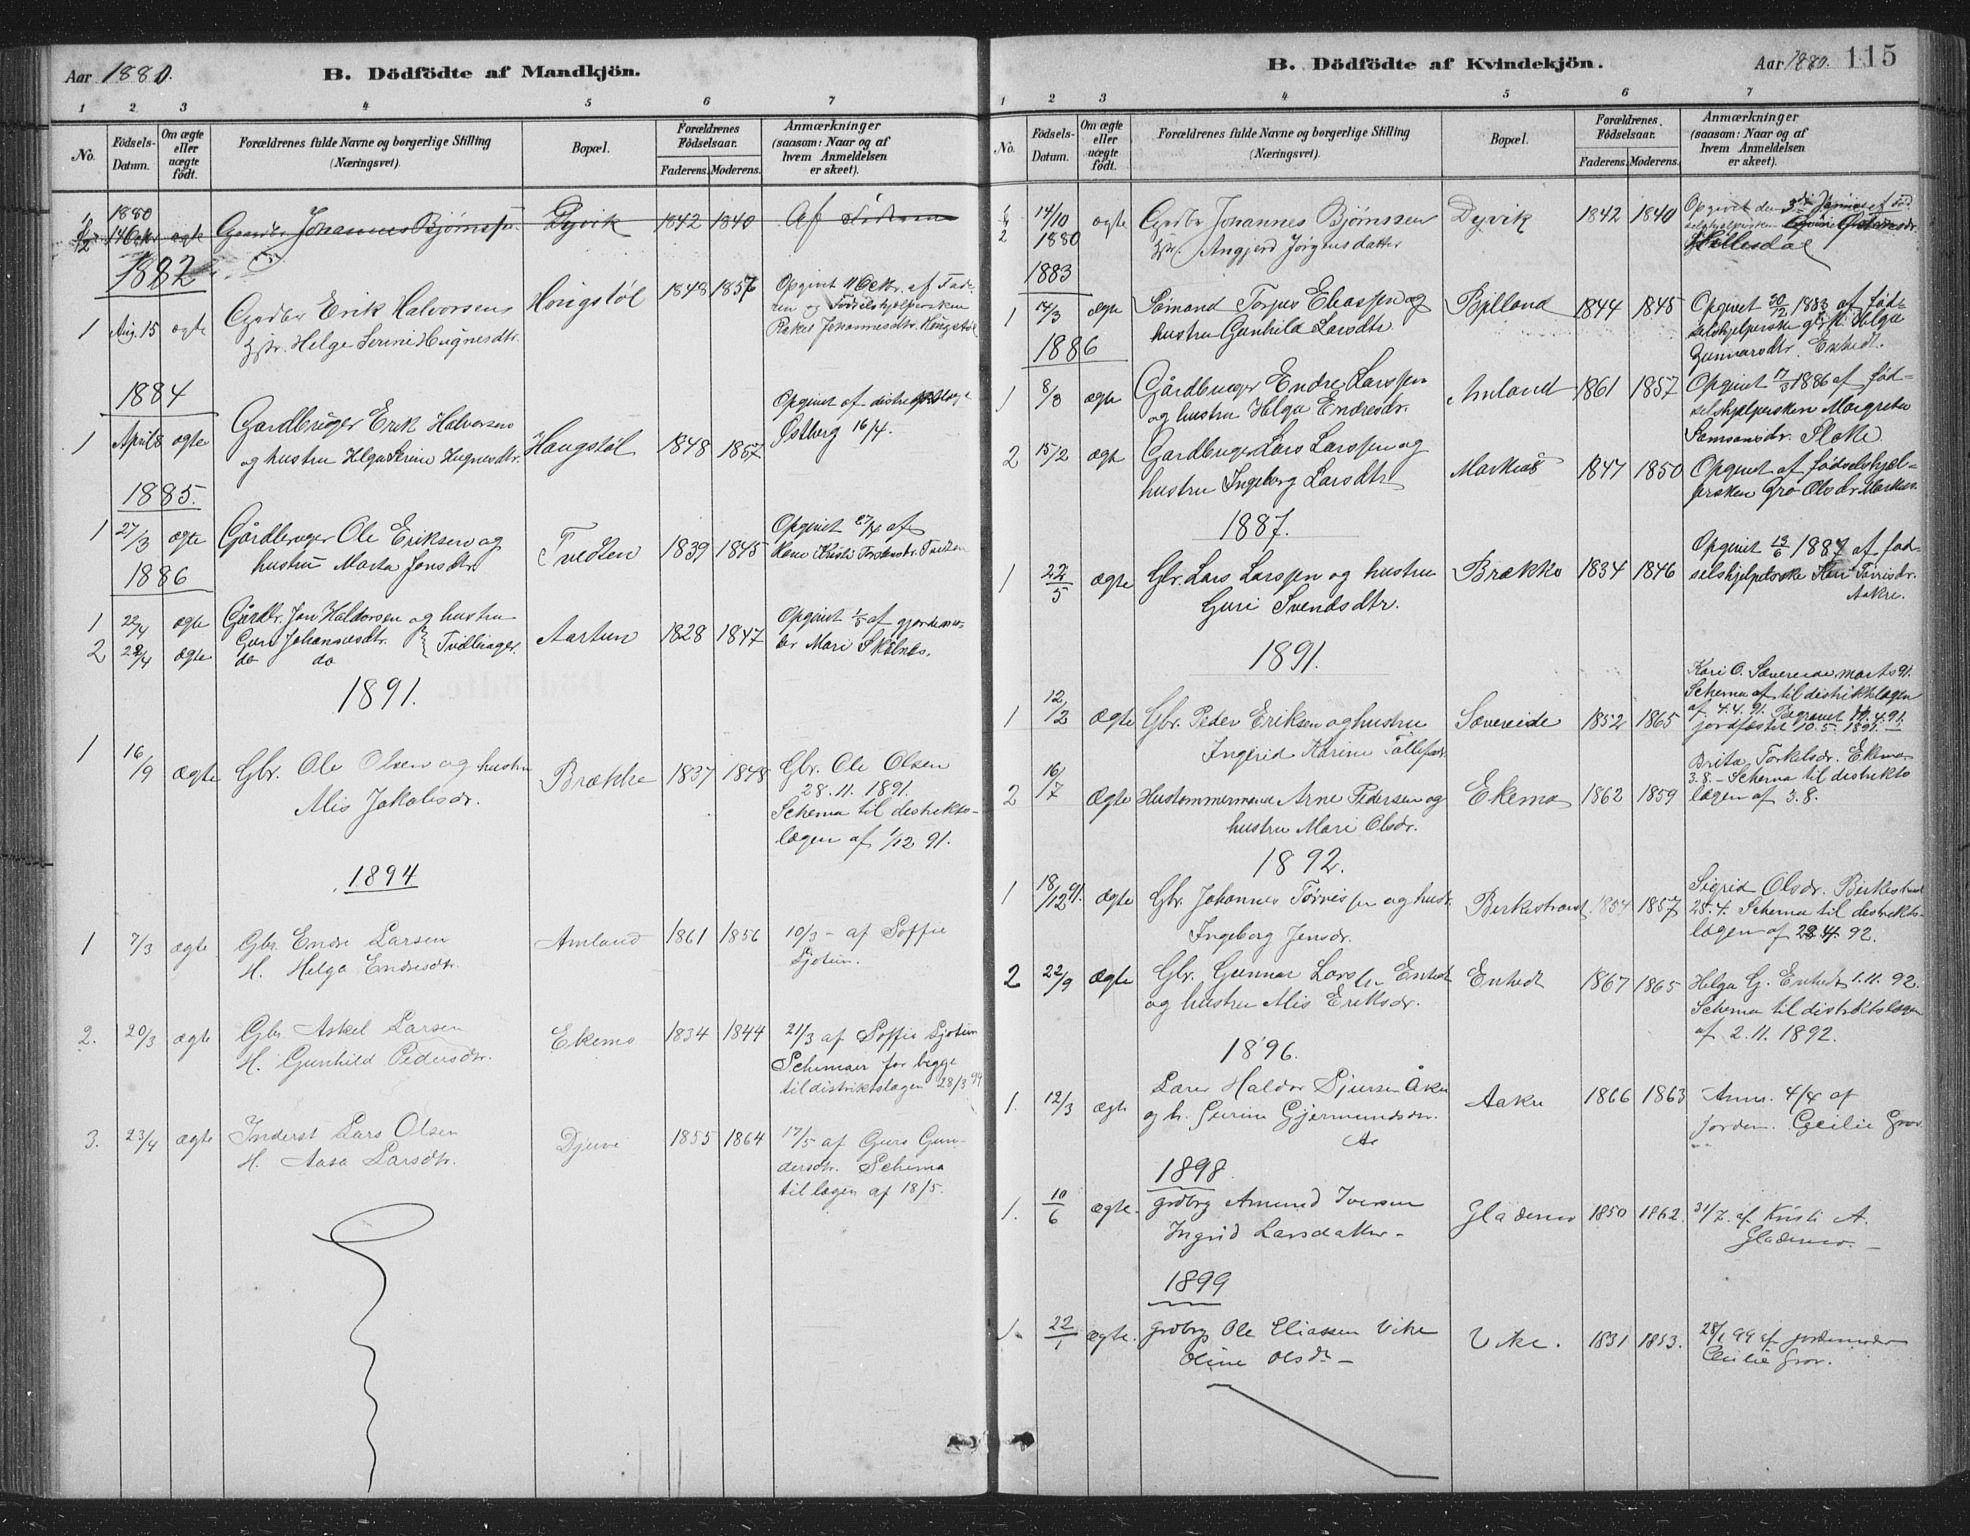 Aar 1880.
B. Dödfödte af Mandkjön.
1 2 3 4 5 6 7
No.
Födsels-
Datum.
Om ægte
eller
uægte
födt.
Forældrenes fulde Navne og borgerlige Stilling
(Næringsvei).
Bopæl.
Forældrenes
Födselsaar.
Faderens. Moderens.
Anmærkninger
(saasom: Naar og af
hvem Anmeldelsen
er skeet).
1880
14 Octr ægte Gaardbr Johannes Bjørnsen Dyvik 1842 1840 Af Faderen
1882
1 Aug. 15 ægte Gardbr Erik Halvorsen Hougstøl 1848 1857
Hstr. Helge Serine Hugnesdtr.
Opgivet 11 Octr. af Fade-
ren og Fødselshjelpersken
Johannesdtr. Hougstøl
1884
1 April 8 ægte Gardbruger Erik Halvorsen
og hustru Helga Serine Hugnesdtr. Haugstøl 1848 1857
Opgivet af distriktslæge
Østberg 16/4.
1885.
1 27/3 ægte Gårdbruger Ole Eriksen og
hustru Marta Jonsdtr. Tvedten 1839 1845
Opgivet 27/4 af
Kristi Tvedten
1886
1 22/4 ægte Gårdbr. Jon Haldorsen og hustru
Guri Johannesdtr. Tvillinger.
2 22/4 ægte do do
Aartun 1828 1847
Opgivet 1/5 af gjordemo-
der Mari Skålnes.
1891.
1 16/9 ægte Gbr. Ole Olsen og hustru
Alis Jakobsdr. Brække 1837 1848
Gbr. Ole Olsen
28.11.1891.
Schema til distrikts-
lægen af 1/12 91.
1894
1 7/3 ægte Gbr. Endre Larsen
H. Helga Endresdtr. Amland 1861 1856
10/3 - af Soffie
Sjotun.
2. 20/3 ægte Gbr Askel Larsen
H. Gunhild Pedersdtr. Ekemo 1834 1844
21/3 af Soffie Sjotun
Schemaer for begge
til distriktslægen 28/3 94
3. 23/4 ægte Inderst Lars Olsen
H. Aasa Larsdtr. Djuve 1855 1864
17/5 af Guro Gun-
dersdtr. Schema
til lægen af 18/5.
B. Dödfödte af Kvindekjön.
Aar 1880. 115
1 2 3 4 5 6 7
No.
Födsels-
Datum.
Om ægte
eller
uægte
födt.
Forældrenes fulde Navne og borgerlige Stilling
(Næringsvei).
Bopæl.
Forældrenes
Födselsaar.
Faderens. Moderens.
Anmærkninger
(saasom: Naar og af
hvem Anmeldelsen
er skeet).
14/10 ægte Grdbr Johannes Bjørnsen Dyvik 1842 1840
1880 Hstr. Angjerd Jørgensdatter
Opgivet den 3die Januar af fød-
selshjelpersken
Hillesdal
1883
1 14/3 ægte Sømand Torjus Eliassen og
hustru Gunhild Larsdtr Bjelland 1844 1845
Opgivet 30/12 1883 af fød-
selshjelperske Helga
Gunnarsdtr. Enhedt.
1886
1 8/3 ægte Gårdbruger Endre Larssen
og hustru Helga Endresdr. Amland 1861 1857
Opgivet 17/3 1886 af fød-
selshjelpersken Margreta
Samsonsdr. Floke
2 15/2 ægte Gardbruger Lars Larssen og
hustru Ingeborg Larsdtr Markus 1847 1850
Opgivet af fødselshjel-
persken Gro Olsdr Markus.
1887.
1 22/5 ægte Gbr. Lars Larssen og hustru
Guri Svendsdtr. Brække 1834 1846
Opgivet 12/6 1887 af fød-
selshjelperske Kari Torrisdr.
Aakre.
1891.
1 12/3 ægte Gbr. Peder Eriksen og hustru
Ingerid Karine Tollefsdr. Sævereide 1852 1865
Kari O. Sævereide marts 91.
Schema af til distriktslægen
af 4.4.91. Begravet 14.4.91.
jordfæstet 10.5.1891.
2 16/7 ægte Hustømmermand Arne Pedersen og
hustru Mari Olsdr. Ekemo 1862 1859
Brita Torkelsdr. Ekemo
3.8. - Schema til distrikts
lægen af 3.8.
1892.
1 18/12 91. ægte Gbr. Johannes Tørrissen og hustr.
Ingeborg Jensdr. Birkestrand 1854 1857
Sigrid Olsdr. Birkestrand
25.4. Schema til distrikts-
lægen af 28.4. 92.
2 22/9 ægte Gbr. Gunnar Larssen Enhedt
og hustru Alis Eriksdr. Enhedt 1867 1865
Helga G. Enhedt 1.11.92.
Schema til distriktslægen
af 2.11.1892.
1896.
1. 12/3 ægte Lærer Haldor Sjursen Åkre
og h. Serine Gjermundsdr. Aakre 1866 1863
Anm. 4/4 af
jordem. Cecilie Grov.
1898.
1. 10/6 ægte. grdbrg Amund Iversen
Ingrid Larsdatter - Glademo 1850 1862.
21/7 af Kristi A.
Glademo. -
1899
1. 22/1 ægte. grdbrg Ole Eliassen Vike
Oline Olsdr - Vike. 1831 1853.
28/1 99 af jordemoder
Cecilie Grov.